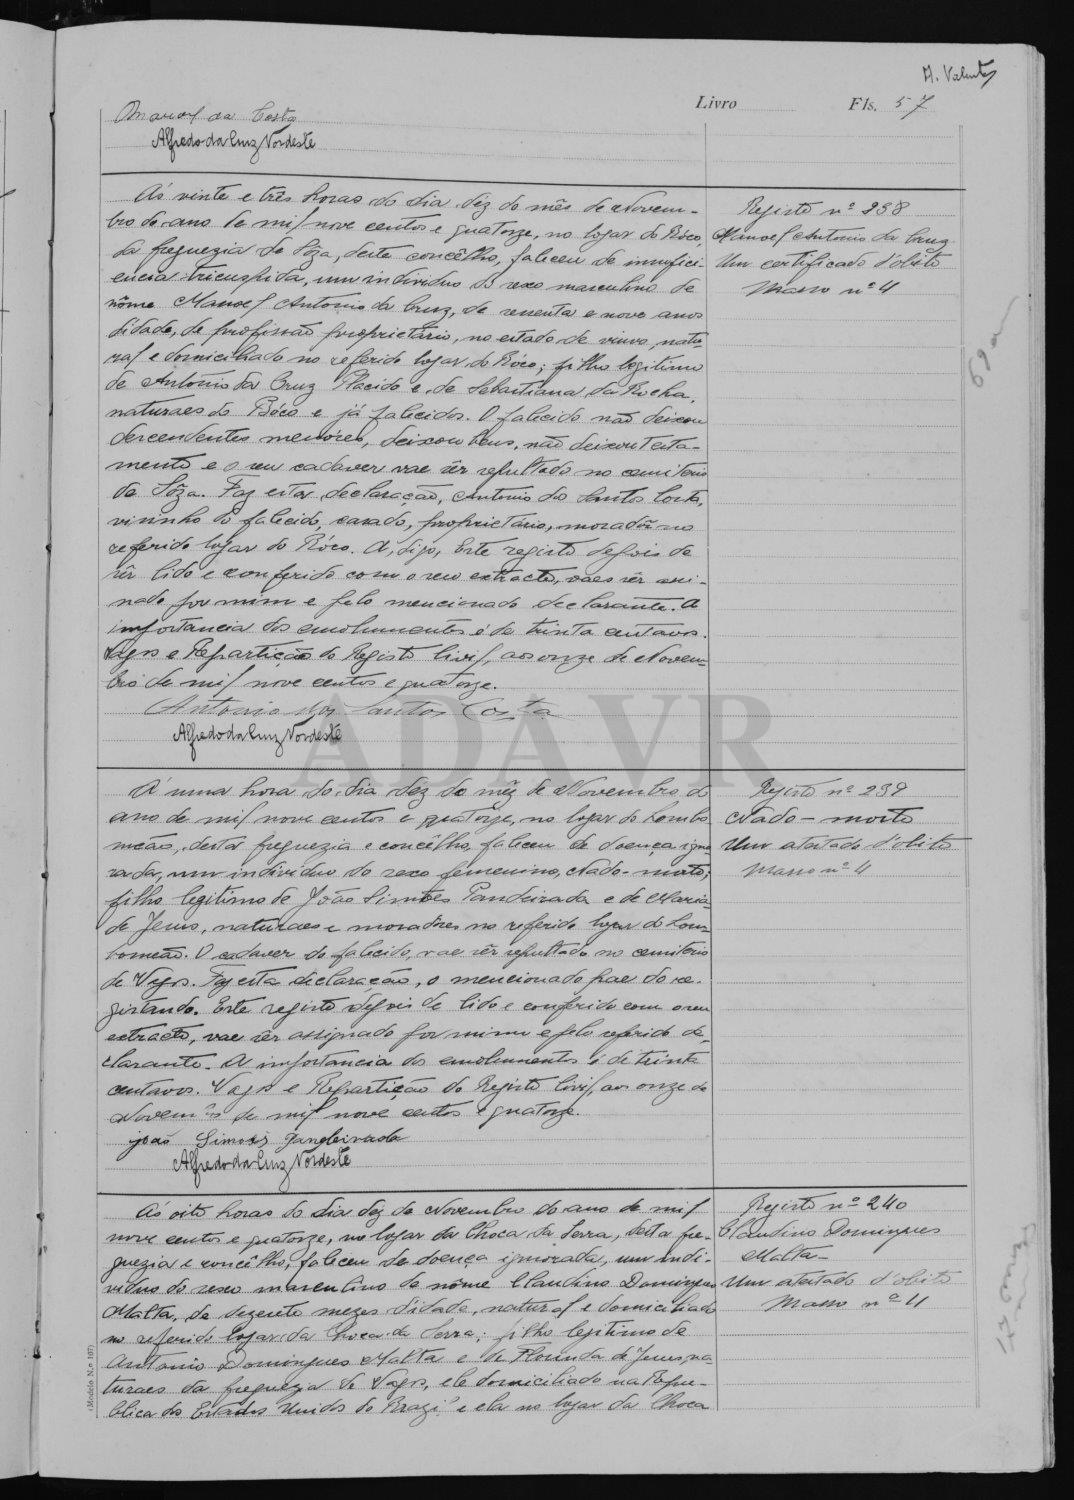 A. Valente
Livro Fls. 57
Manoel da Costa
Alfredo da Cruz Nordeste
Ás vinte e três horas do dia dez do mês de Novem-
bro do ano de mil nove centos e quatorze, no logar do Bóco,
da freguezia de Sôza, deste concêlho, faleceu de insufici-
encia tricuspida, um individuo do sexo masculino de
nôme Manoel Antonio da Cruz, de sessenta e nove anos
didade, de profissão proprietário, no estado de viuvo, natu-
ral e domiciliado no referido logar do Bóco; filho legitimo
de Antonio da Cruz Placido e de Sebastiana da Rocha,
naturaes do Bóco e já falecidos. O falecido não deixou
descendentes menóres, deixou bens, não deixou testa-
mento e o seu cadaver vae sêr sepultado no cemiterio
de Sôza. Faz esta declaração, Antonio dos Santos Costa,
visinho do falecido, casado, proprietario, moradôr no
referido logar do Bóco. A, digo, Este registo depois de
sêr lido e conferido com o seu extracto, vae sêr assi-
nado por mim e pelo mencionado declarante. A
importancia dos emolumentos é de trinta centavos.
Vagos e Repartição do Registo Civil, aos onze de Novem-
bro de mil nove centos e quatorze.
Antonio dos Santos Costa
Alfredo da Cruz Nordeste
Registo nº 238
Manoel Antonio da Cruz
Um certificado d'obito
Masso nº 4
69 an
ADAVR
Á uma hora do dia dez do mês de Novembro do
ano de mil nove centos e quatorze, no logar do Lombo
meão, desta freguezia e concêlho, faleceu de doença igno
rada, um individuo do sexo femenino, Nado-morto,
filho legitimo de João Simões Pandeirada e de Maria
de Jesus, naturaes e moradôres no referido logar do Lom-
bomeão. O cadaver do falecido, vae sêr sepultado no cemiterio
de Vagos. Faz esta declaração, o mencionado pae do re-
gistando. Este registo depois de lido e conferido com o seu
extracto, vae sêr assignado por mim e pelo referido de-
clarante. A importancia dos emolumentos é de trinta
centavos. Vagos e Repartição do Registo Civil, aos onze de
Novembro de mil nove centos e quatorze.
joão Simões Pandeirada
Alfredo da Cruz Nordeste
Registo nº 239
Nado-morto
Um atestado d'obito
Masso nº 4
Ás oito horas do dia dez de Novembro do ano de mil
nove centos e quatorze, no logar da Choca da Serra, desta fre-
guezia e concêlho, faleceu de doença ignorada, um indi-
viduo do sexo masculino de nôme Claudino Domingues
Malta, de dezesete mezes d'idade, natural e domiciliado
no referido logar da Choca da Serra; filho legitimo de
Antonio Domingues Malta e de Florinda de Jesus, na-
turaes da freguezia de Vagos, ele domiciliado na Repu-
blica dos Estados Unidos do Brazil e ela no logar da Choca
Registo nº 240
Claudino Domingues
Malta-
Um atestado d'obito
Masso nº 4
17 mezes
(Modelo N.º 167)